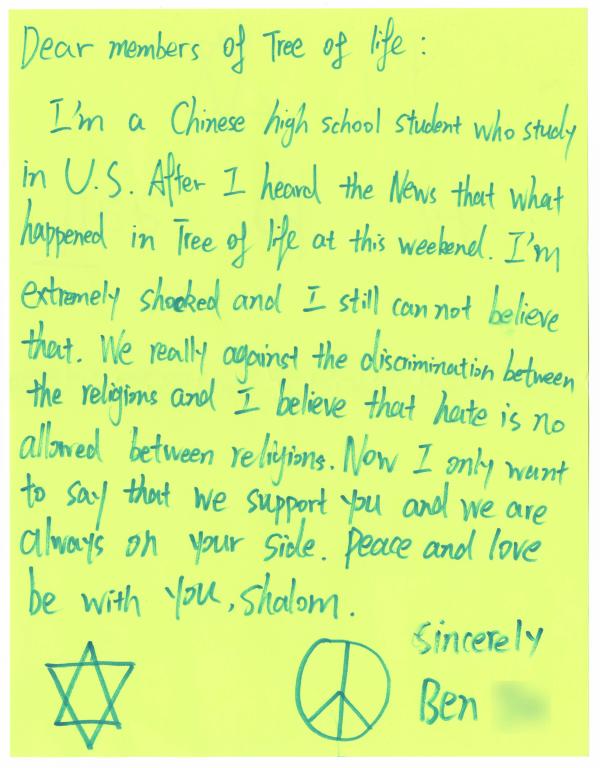 Dear members of Tree of life :
I'm a Chinese high school student who study
in U.S. After I heard the News that what
happened in Tree of life at this weekend. I'm
extremely shocked and I still can not believe
that. We really against the discrimination between
the religions and I believe that hate is no
allowed between religions. Now I only want
to say that we support you and we are
always on your side. Peace and love
be with you, shalom.
Sincerely
Ben